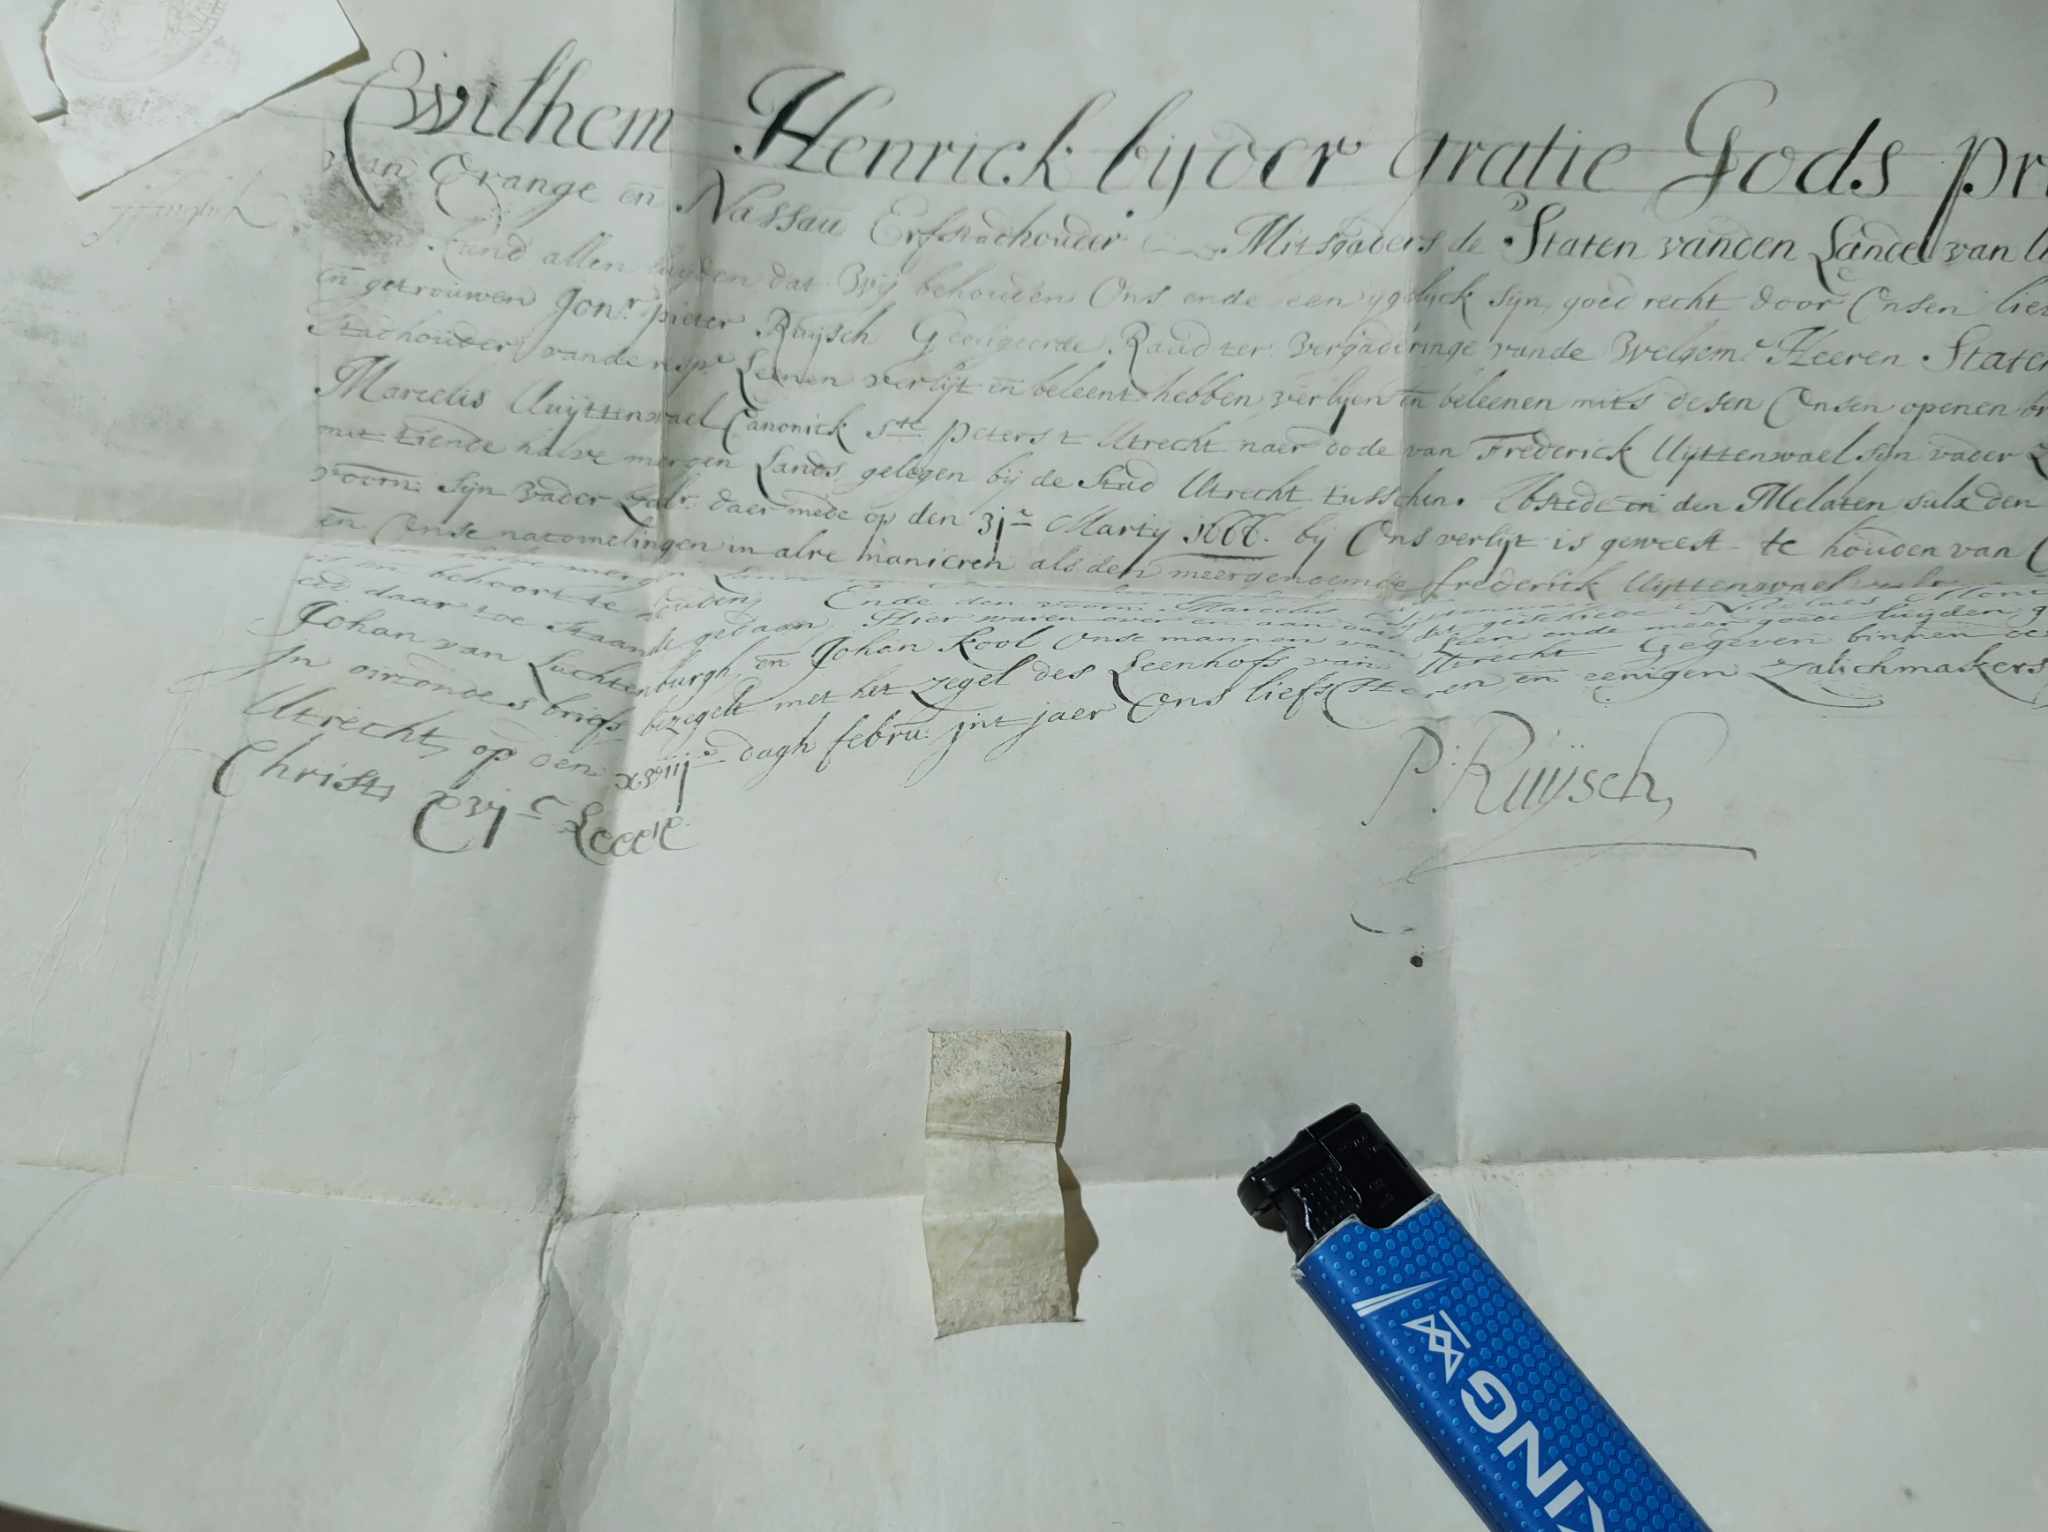 Wilhem Henrick bij der gratie Gods pr
van Orange en Nassau Erfstadhouder Mitsgaders de Staten vanden Lande van
Lund allen luyden dat Wij behouden Ons ende een ygelyck syn goed recht door Onsen lie
en getrouwen Jonr. pieter Ruijsch Geeligeerde Raad ter vergaderinge vande Welgeme Heeren Staten
Stadhouder vande respe Leenen verlijt en beleent hebben, verlijen en beleenen mits desen Onsen openen br
Marcelis Uuijttenwael Canonick Ste peters t Utrecht naer dode van Frederick Uijttenwael syn vader
met tiende halve mergen Lands gelegen bij de Stad Utrecht tusschen den Melaten sulx den
voorn: syn vader zalr. daer mede op den 3je Marty 1666. bij Ons verlijt is geweest te houden van
en Onse nacomelingen in alre manieren als den meergenoemde frederick Uijttenwael
mergen
en behoort te houden Ende den voorn: Marcelis
eed daar toe staande gedaan Hier waren over en aan daer dit geschiede Nicolaes
Johan van Luchtenburgh, en Johan Kool Onse mannen van Leen ende meer goede luyden
In oirconde s briefs bezegelt met het zegel des Leenhofs van Utrecht Gegeven binnen
Utrecht, op den xviije dagh febru: int jaer Ons liefs Heren en eenigen zalichmakers
Christi xvjc Lxxxx
P: Ruijsch
KING